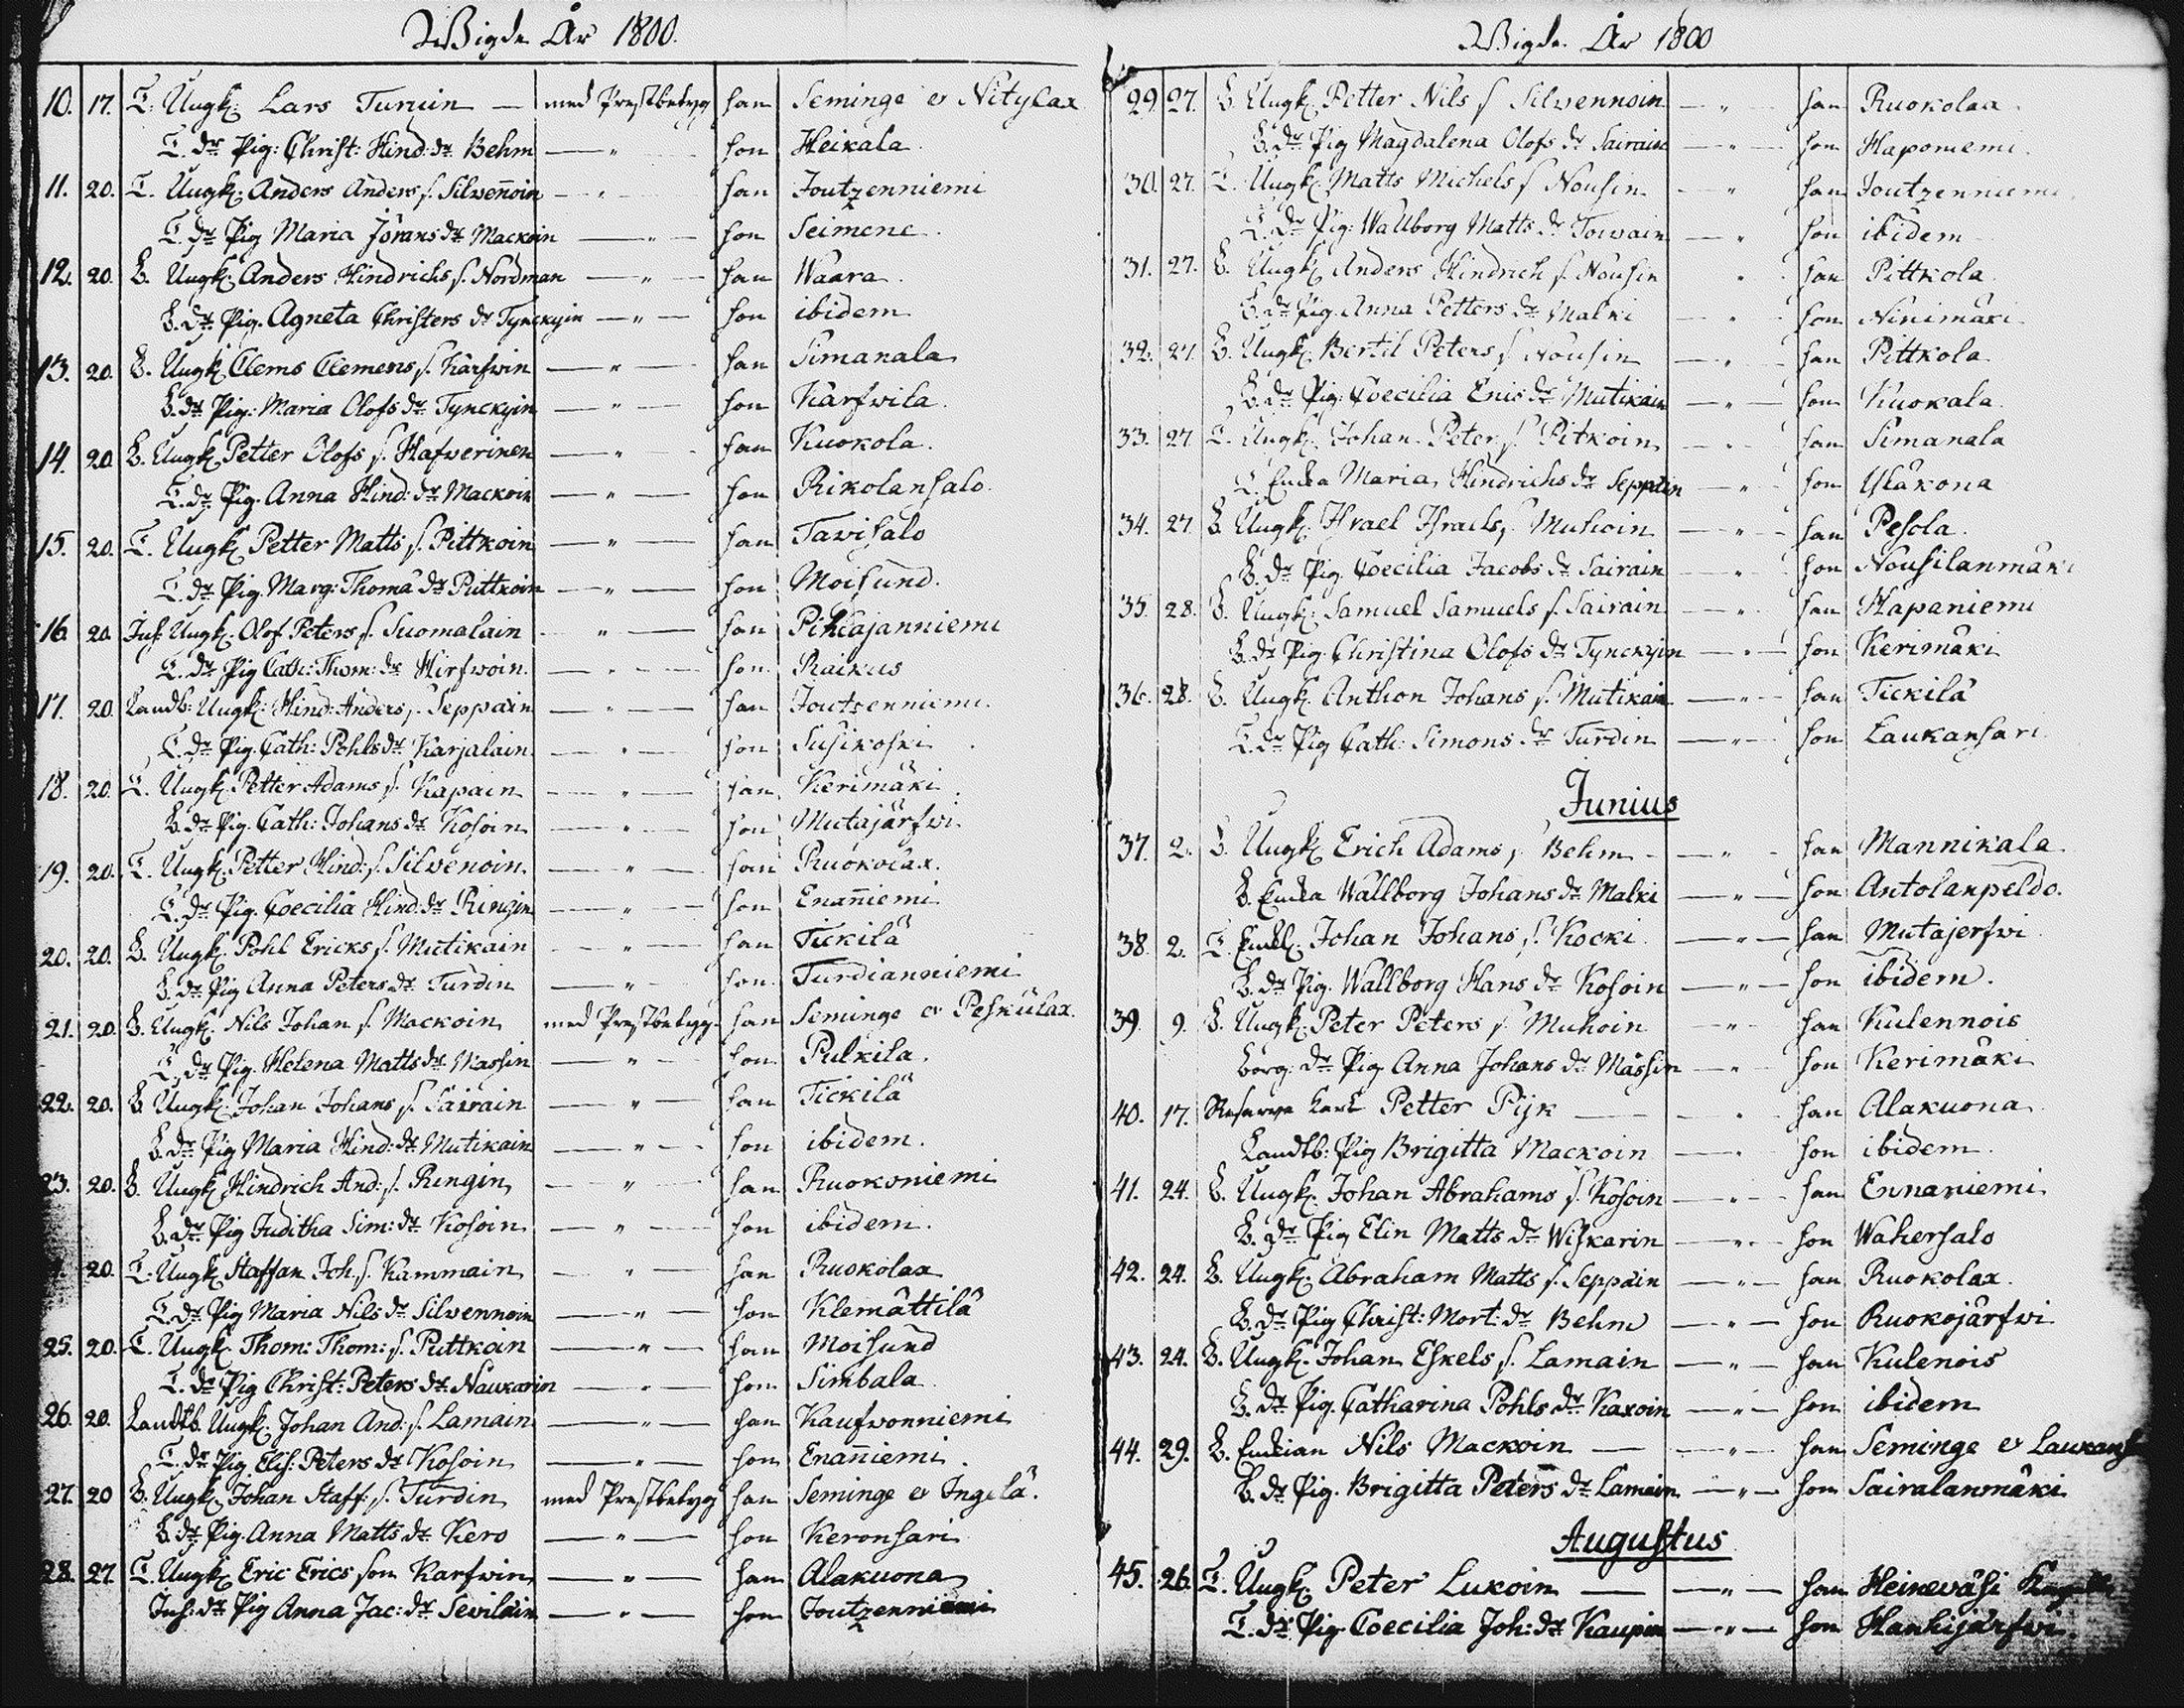 Wigde År 1800.
10. 17. T. Ungk. Lars Turuin — med Prestbetyg han Seminge o Nitylax
T. dr Pig: Christ: Hind: dr Behm — " — hon Heikala.
11. 20. T. Ungk. Anders Anders s. Silwenoin — " — han Joutzenniemi
T. dr Pig Maria Jörans dr Mackoin — " — hon Seimene.
12. 20. B. Ungk. Anders Hindrichs s. Nordman — " — han Waara.
B. dr Pig. Agneta Christers dr Tynckyin — " — hon ibidem
13. 20. B. Ungk. Clems Clemens s. Karfwin — " — han Simanala
B. dr Pig: Maria Olofs dr Tynckyin — " — hon Karfwila.
14. 20. B. Ungk. Petter Olofs s. Hafwerinen — " — han Kuokola.
T. dr Pig. Anna Hind: dr Mackoin — " — hon Rikolansalo.
15. 20. T. Ungk. Petter Matts s. Pittkoin — " — han Tavisalo
T. dr Pig. Marg: Thoma dr Puttkoin — " — hon Moisund.
16. 20. Inh: Ungk. Olof Peters s. Suomalain — " — han Pihlajanniemi
T. dr Pig Cath: Thom: dr Hirfwoin. — " — hon Raikus
17. 20. Landb: Ungk: Hind: Anders s. Seppäin — " — han Joutsenniemi.
T. dr Pig. Cath: Pohls dr Karjalain. — " — hon Susikoski
18. 20. T. Ungk. Petter Adams s. Kapain — " — han Kerimäki.
B. dr Pig. Cath: Johans dr Kosoin — " — hon Mutajärfwi
19. 20. T. Ungk. Petter Hind: s. Silvenoin. — " — han Ruokolax.
T. dr Pig. Coecilia Hind: dr Ringin — " — hon Enaniemi
20. 20. B. Ungk. Pohl Ericks s. Mutikain — " — han Tickilä
B. dr Pig Anna Peters dr Turdin — " — hon Turdianniemi
21. 20. B. Ungk. Nils Johan s. Mackoin med Prestbetyg. han Seminge o Peskulax.
T. dr Pig. Helena Matts dr Massin — " — hon Pulkila.
22. 20. B. Ungk. Johan Johans s. Sairain — " — han Tickilä
B. dr Pig Maria Hind: dr Mutikain — " — hon ibidem.
23. 20. B. Ungk. Hindrich And: s. Ringin — " — han Ruokoniemi
B. dr Pig Juditha Sim: dr Kosoin — " — hon ibidem.
20. T. Ungk. Staffan Joh. s. Kammain — " — han Ruokolax
T. dr Pig Maria Nils dr Silvennoin — " — hon Klemättilä
25. 20. T. Ungk. Thom: Thom: s. Puttkoin — " — han Moisund
T. dr Pig Christ: Peters dr Naukarin — " — hon Simbala
26. 20. Landtb. Ungk. Johan And: s. Lamain — " — han Kaufwonniemi
T. dr Pig Elis: Peters dr Kosoin — " — hon Enaniemi.
27. 20 B. Ungk. Johan Staff: s. Turdin med Prestbetyg han Seminge o Ingelä.
B. dr Pig. Anna Matts dr Kero — " — hon Keronsari
28. 27 T. Ungk. Eric Erics son Karfwin — " — han Alakuona
Inh: dr Pig Anna Jac: dr Seviläin — " — hon Joutzenniemi
Wigde År 1800
29. 27. B. Ungk. Petter Nils s Silvennoin — " han Ruokolax
B. dr Pig Magdalena Olofs dr Sairain — " — hon Haponiemi.
30. 27. T. Ungk. Matts Michels s Nousin — " han Joutzenniemi
T. dr Pig: Wallborg Matts dr Toivain — " hon ibidem
31. 27. B. Ungk. Anders Hindrich s. Nousin " han Pittkola
B. dr Pig. Anna Petters dr Malki — " hon Ninimäki
32. 27. B. Ungk. Bertil Peters s Nousin — " — han Pittkola
B. dr Pig: Coecilia Enis dr Mutikain — " — hon Kuokala.
33. 27 T. Ungk. Johan Peter s. Pitkoin — " han Simanala
T. Enka Maria Hindrichs dr Seppäin — " hon Yläkona
34. 27 B. Ungk. Israel Israels s. Muhoin — " — han Pesola.
B. dr Pig. Coecilia Jacobs dr Sairain — " hon Nousilanmäki
35. 28. B. Ungk. Samuel Samuels s. Sairain — " han Hapaniemi
B. dr Pig. Christina Olofs dr Tynckyin — " — hon Kerimäki
36. 28. B. Ungk. Anthon Johans s. Mutikain — " — han Tickilä
T. dr Pig Cath: Simons dr Turdin — " — hon Laukansari
Junius
37. 2. B. Ungk. Erich Adams s. Behm — " — han Mannikala
B. Enka Wallborg Johans dr Malki — " — hon Antolanpeldo.
38. 2. T. Enkl. Johan Johans s. Kocki. — " — han Mutajerfwi
B. dr Pig. Wallborg Hans dr Kosoin — " — hon ibidem.
39 9. B. Ungk. Peter Peters s. Muhoin — " han Kulennois
Borg. dr Pig Anna Johans dr Mässin — " hon Kerimäki
40. 17. Reserve Karl Petter Pijk — " han Alakuona
Landtb: Pig Brigitta Mackoin — " hon ibidem.
41. 24. B. Ungk. Johan Abrahams s. Kosoin — " — han Ennaniemi
B. dr Pig Elin Matts dr Wiskarin — " — hon Wahersalo
42. 24. B. Ungk. Abraham Matts s. Seppäin — " — han Ruokolax.
B. dr Pig Christ: Mort: dr Behm — " — hon Ruokojärfwi
43. 24. B. Ungk. Johan Eskels s. Lamain — " — han Kulenois
B. dr Pig. Catharina Pohls dr Kaxoin — " — hon ibidem
44. 29. B. Enkian Nils Mackoin — " — han Seminge o Laukans
B. dr Pig. Brigitta Peters dr Lamain — " — hon Sairalanmäki
Augustus
45. 26. T. Ungk. Peter Lukoin — " — han Heineväsi
T. dr Pig. Coecilia Joh: dr Kaupin — " — hon Hankijärfwi.